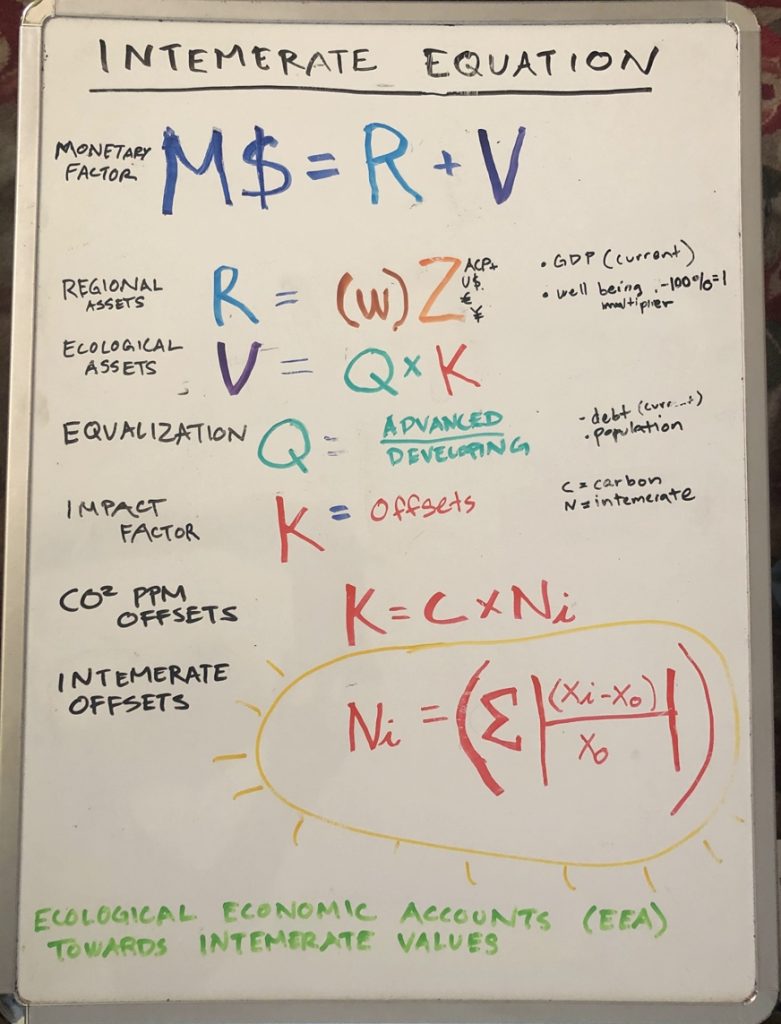 INTEMERATE EQUATION
MONETARY FACTOR M$ = R + V
REGIONAL ASSETS R = (w) Z ACP+ U$ € ¥
• GDP (current)
• well being -100%=1
multiplier
ECOLOGICAL ASSETS V = Q x K
EQUALIZATION Q = ADVANCED
DEVELOPING
- debt
• population
IMPACT FACTOR K = Offsets
C = carbon
N = intemerate
CO² PPM OFFSETS K = C x Ni
INTEMERATE OFFSETS Ni = (Σ |(Xi-Xo)
Xo|)
ECOLOGICAL ECONOMIC ACCOUNTS (EEA)
TOWARDS INTEMERATE VALUES